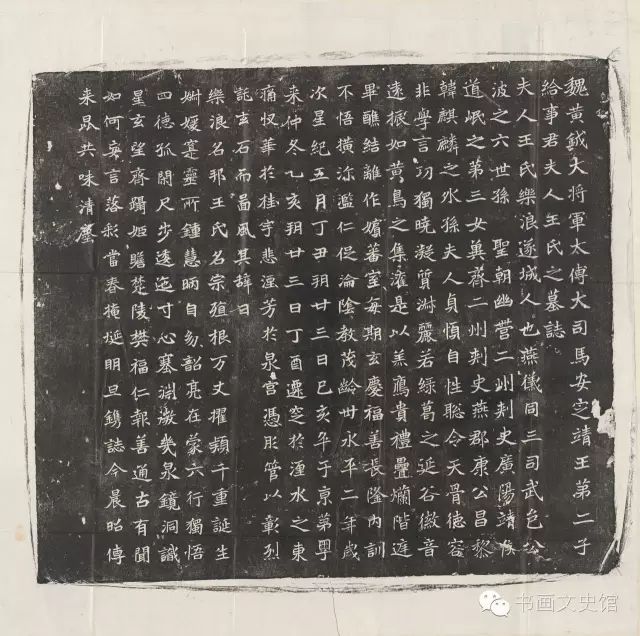 魏黃鉞大將軍太傅大司馬安定靖王第二子
給事君夫人王氏之墓誌
夫人王氏樂浪遂城人也燕儀同三司武邑公
波之六世孫 聖朝幽營二州刾史廣陽靖侯
道岷之第三女兾齊二州刾史燕郡康公昌黎
韓麒麟之外孫夫人貞慎自性聡令天骨德容
非學言功獨曉凝質淋麗若綠葛之延谷徽音
遠振如黃鳥之集灌是以羔鴈貴禮疊爛階庭
畢醮結離作嬪蕃室每期玄慶福善長隆內訓
不悟橫流濫仁促淪陰教茂齡卅永平二年歲
次星紀五月丁丑朔廿三日己亥卒于京第粤
来仲冬乙亥朔廿三日丁酉遷窆於湹水之東
痛恨華於桂宇悲湮芳於泉宮憑彤管以彰烈
託玄石而畄風其辞曰
樂浪名邦王氏名宗殖根万丈擢穎千重誕生
姍媛寔靈所鍾慧晒自幼韶亮在蒙六行獨悟
四德孤閑尺步透迤寸心塞淵澈㡬泉鏡洞識
星玄望齊躅姬瞻楚陵樊福仁報善通古有聞
如何妄言落彩當春掩埏明旦鐫誌今晨昭傳
来昆共味清塵
书画文史馆